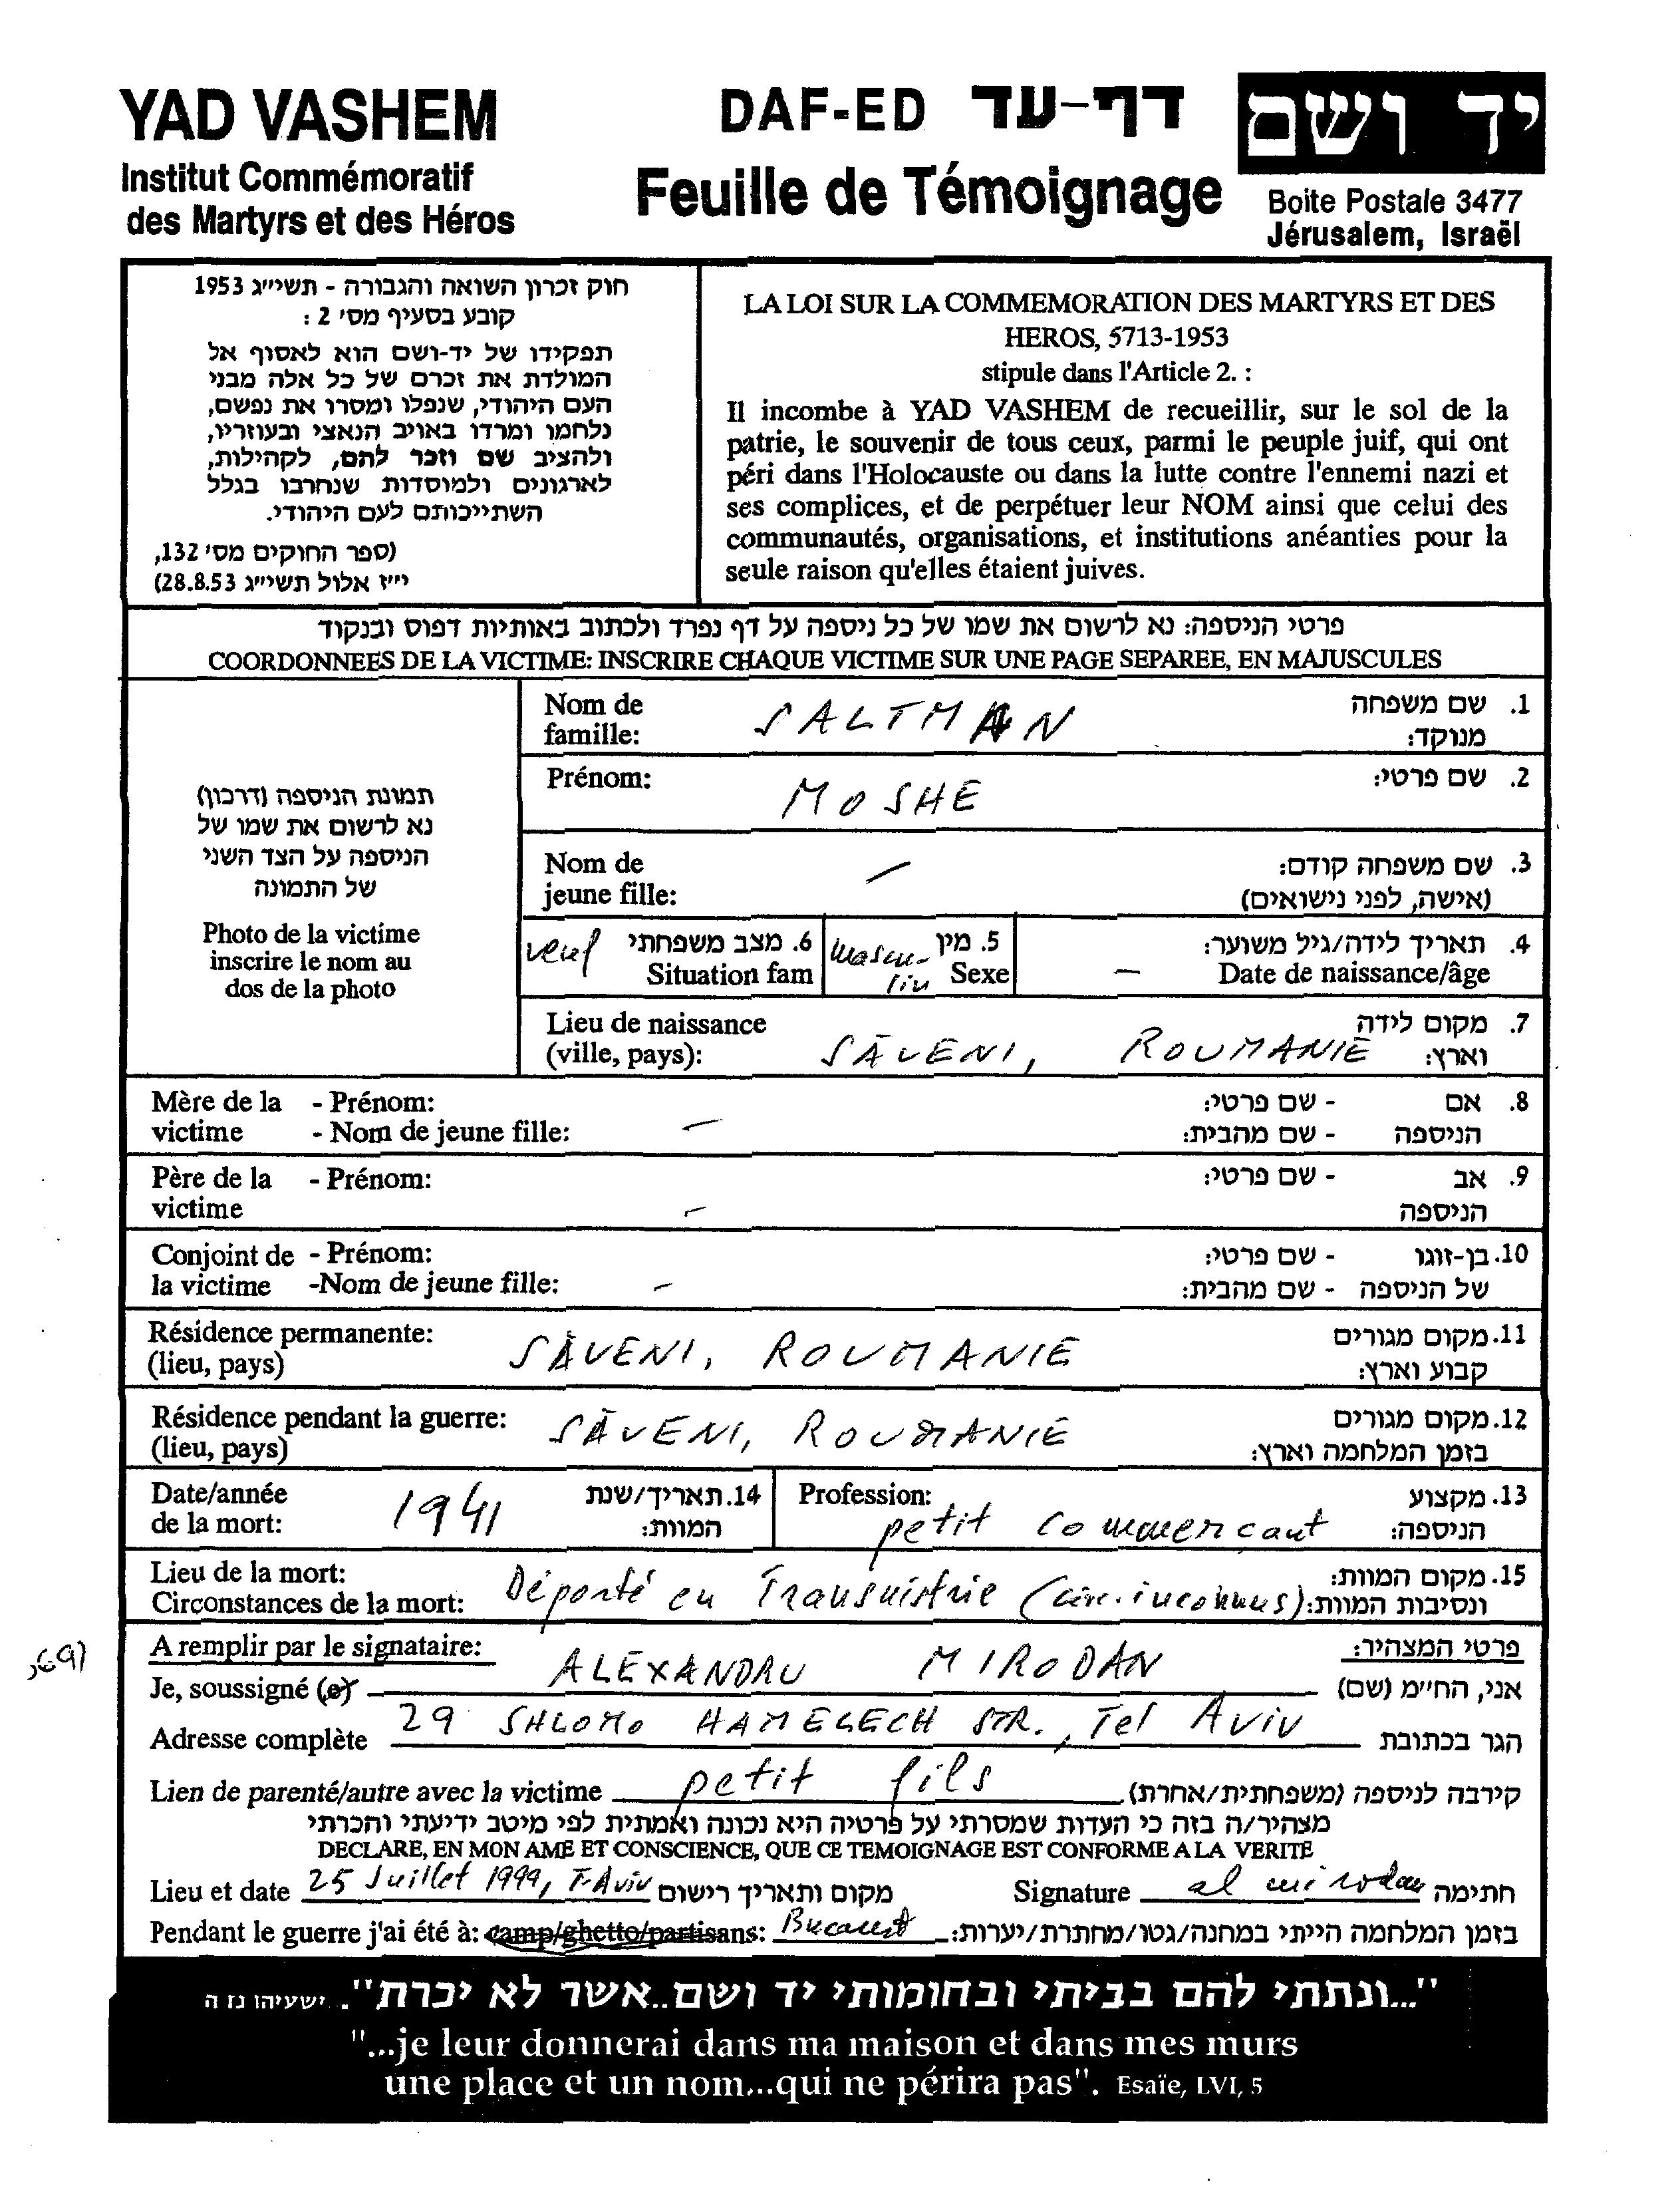 YAD VASHEM
Institut Commémoratif
des Martyrs et des Héros
DAF-ED דף-עד
Feuille de Témoignage
יד ושם
Boite Postale 3477
Jérusalem, Israël
חוק זכרון השואה והגבורה - תשי״ג 1953
קובע בסעיף מס׳ 2 :
תפקידו של יד-ושם הוא לאסוף אל
המולדת את זכרם של כל אלה מבני
העם היהודי, שנפלו ומסרו את נפשם,
נלחמו ומרדו באויב הנאצי ובעוזריו,
ולהציב שם וזכר להם, לקהילות,
לארגונים ולמוסדות שנחרבו בגלל
השתייכותם לעם היהודי.
(ספר החוקים מס׳ 132,
י״ז אלול תשי״ג 28.8.53)
LA LOI SUR LA COMMEMORATION DES MARTYRS ET DES
HEROS, 5713-1953
stipule dans l'Article 2. :
Il incombe à YAD VASHEM de recueillir, sur le sol de la
patrie, le souvenir de tous ceux, parmi le peuple juif, qui ont
péri dans l'Holocauste ou dans la lutte contre l'ennemi nazi et
ses complices, et de perpétuer leur NOM ainsi que celui des
communautés, organisations, et institutions anéanties pour la
seule raison qu'elles étaient juives.
פרטי הניספה: נא לרשום את שמו של כל ניספה על דף נפרד ולכתוב באותיות דפוס ובנקוד
COORDONNEES DE LA VICTIME: INSCRIRE CHAQUE VICTIME SUR UNE PAGE SEPAREE, EN MAJUSCULES
תמונת הניספה (דרכון)
נא לרשום את שמו של
הניספה על הצד השני
של התמונה
Photo de la victime
inscrire le nom au
dos de la photo
Nom de SALTMAN 1. שם משפחה
famille: מנוקד:
Prénom: MOSHE 2. שם פרטי:
Nom de – 3. שם משפחה קודם:
jeune fille: (אישה, לפני נישואים)
veuf 6. מצב משפחתי mascu- 5. מין 4. תאריך לידה/גיל משוער:
Situation fam lin Sexe – Date de naissance/âge
Lieu de naissance 7. מקום לידה
(ville, pays): SĂVENI, ROUMANIE וארץ:
Mère de la - Prénom: - שם פרטי: 8. אם
victime - Nom de jeune fille: – - שם מהבית: הניספה
Père de la - Prénom: - שם פרטי: 9. אב
victime – הניספה
Conjoint de - Prénom: - שם פרטי: 10. בן-זוגו
la victime -Nom de jeune fille: – - שם מהבית: של הניספה
Résidence permanente: SĂVENI, ROUMANIE 11. מקום מגורים
(lieu, pays) קבוע וארץ:
Résidence pendant la guerre: SĂVENI, ROUMANIE 12. מקום מגורים
(lieu, pays) בזמן המלחמה וארץ:
Date/année 1941 14. תאריך/שנת Profession: 13. מקצוע
de la mort: המוות: petit commerçant הניספה:
Lieu de la mort: 15. מקום המוות:
Circonstances de la mort: Déporté en Transnistrie (circ. inconnues) ונסיבות המוות:
A remplir par le signataire: פרטי המצהיר:
Je, soussigné (e) ALEXANDRU MIRODAN אני, הח״מ (שם)
Adresse complète 29 SHLOMO HAMELECH STR., Tel Aviv הגר בכתובת
Lien de parenté/autre avec la victime petit fils קירבה לניספה (משפחתית/אחרת)
מצהיר/ה בזה כי העדות שמסרתי על פרטיה היא נכונה ואמתית לפי מיטב ידיעתי והכרתי
DECLARE, EN MON AME ET CONSCIENCE, QUE CE TEMOIGNAGE EST CONFORME A LA VERITE
Lieu et date 25 Juillet 1999, T-Aviv מקום ותאריך רישום Signature al mirodan חתימה
Pendant le guerre j'ai été à: camp/ghetto/partisans: Bucarest בזמן המלחמה הייתי במחנה/גטו/מחתרת/יערות:
"...ונתתי להם בביתי ובחומותי יד ושם..אשר לא יכרת". ישעיהו נז ה
"...je leur donnerai dans ma maison et dans mes murs
une place et un nom...qui ne périra pas". Esaïe, LVI, 5